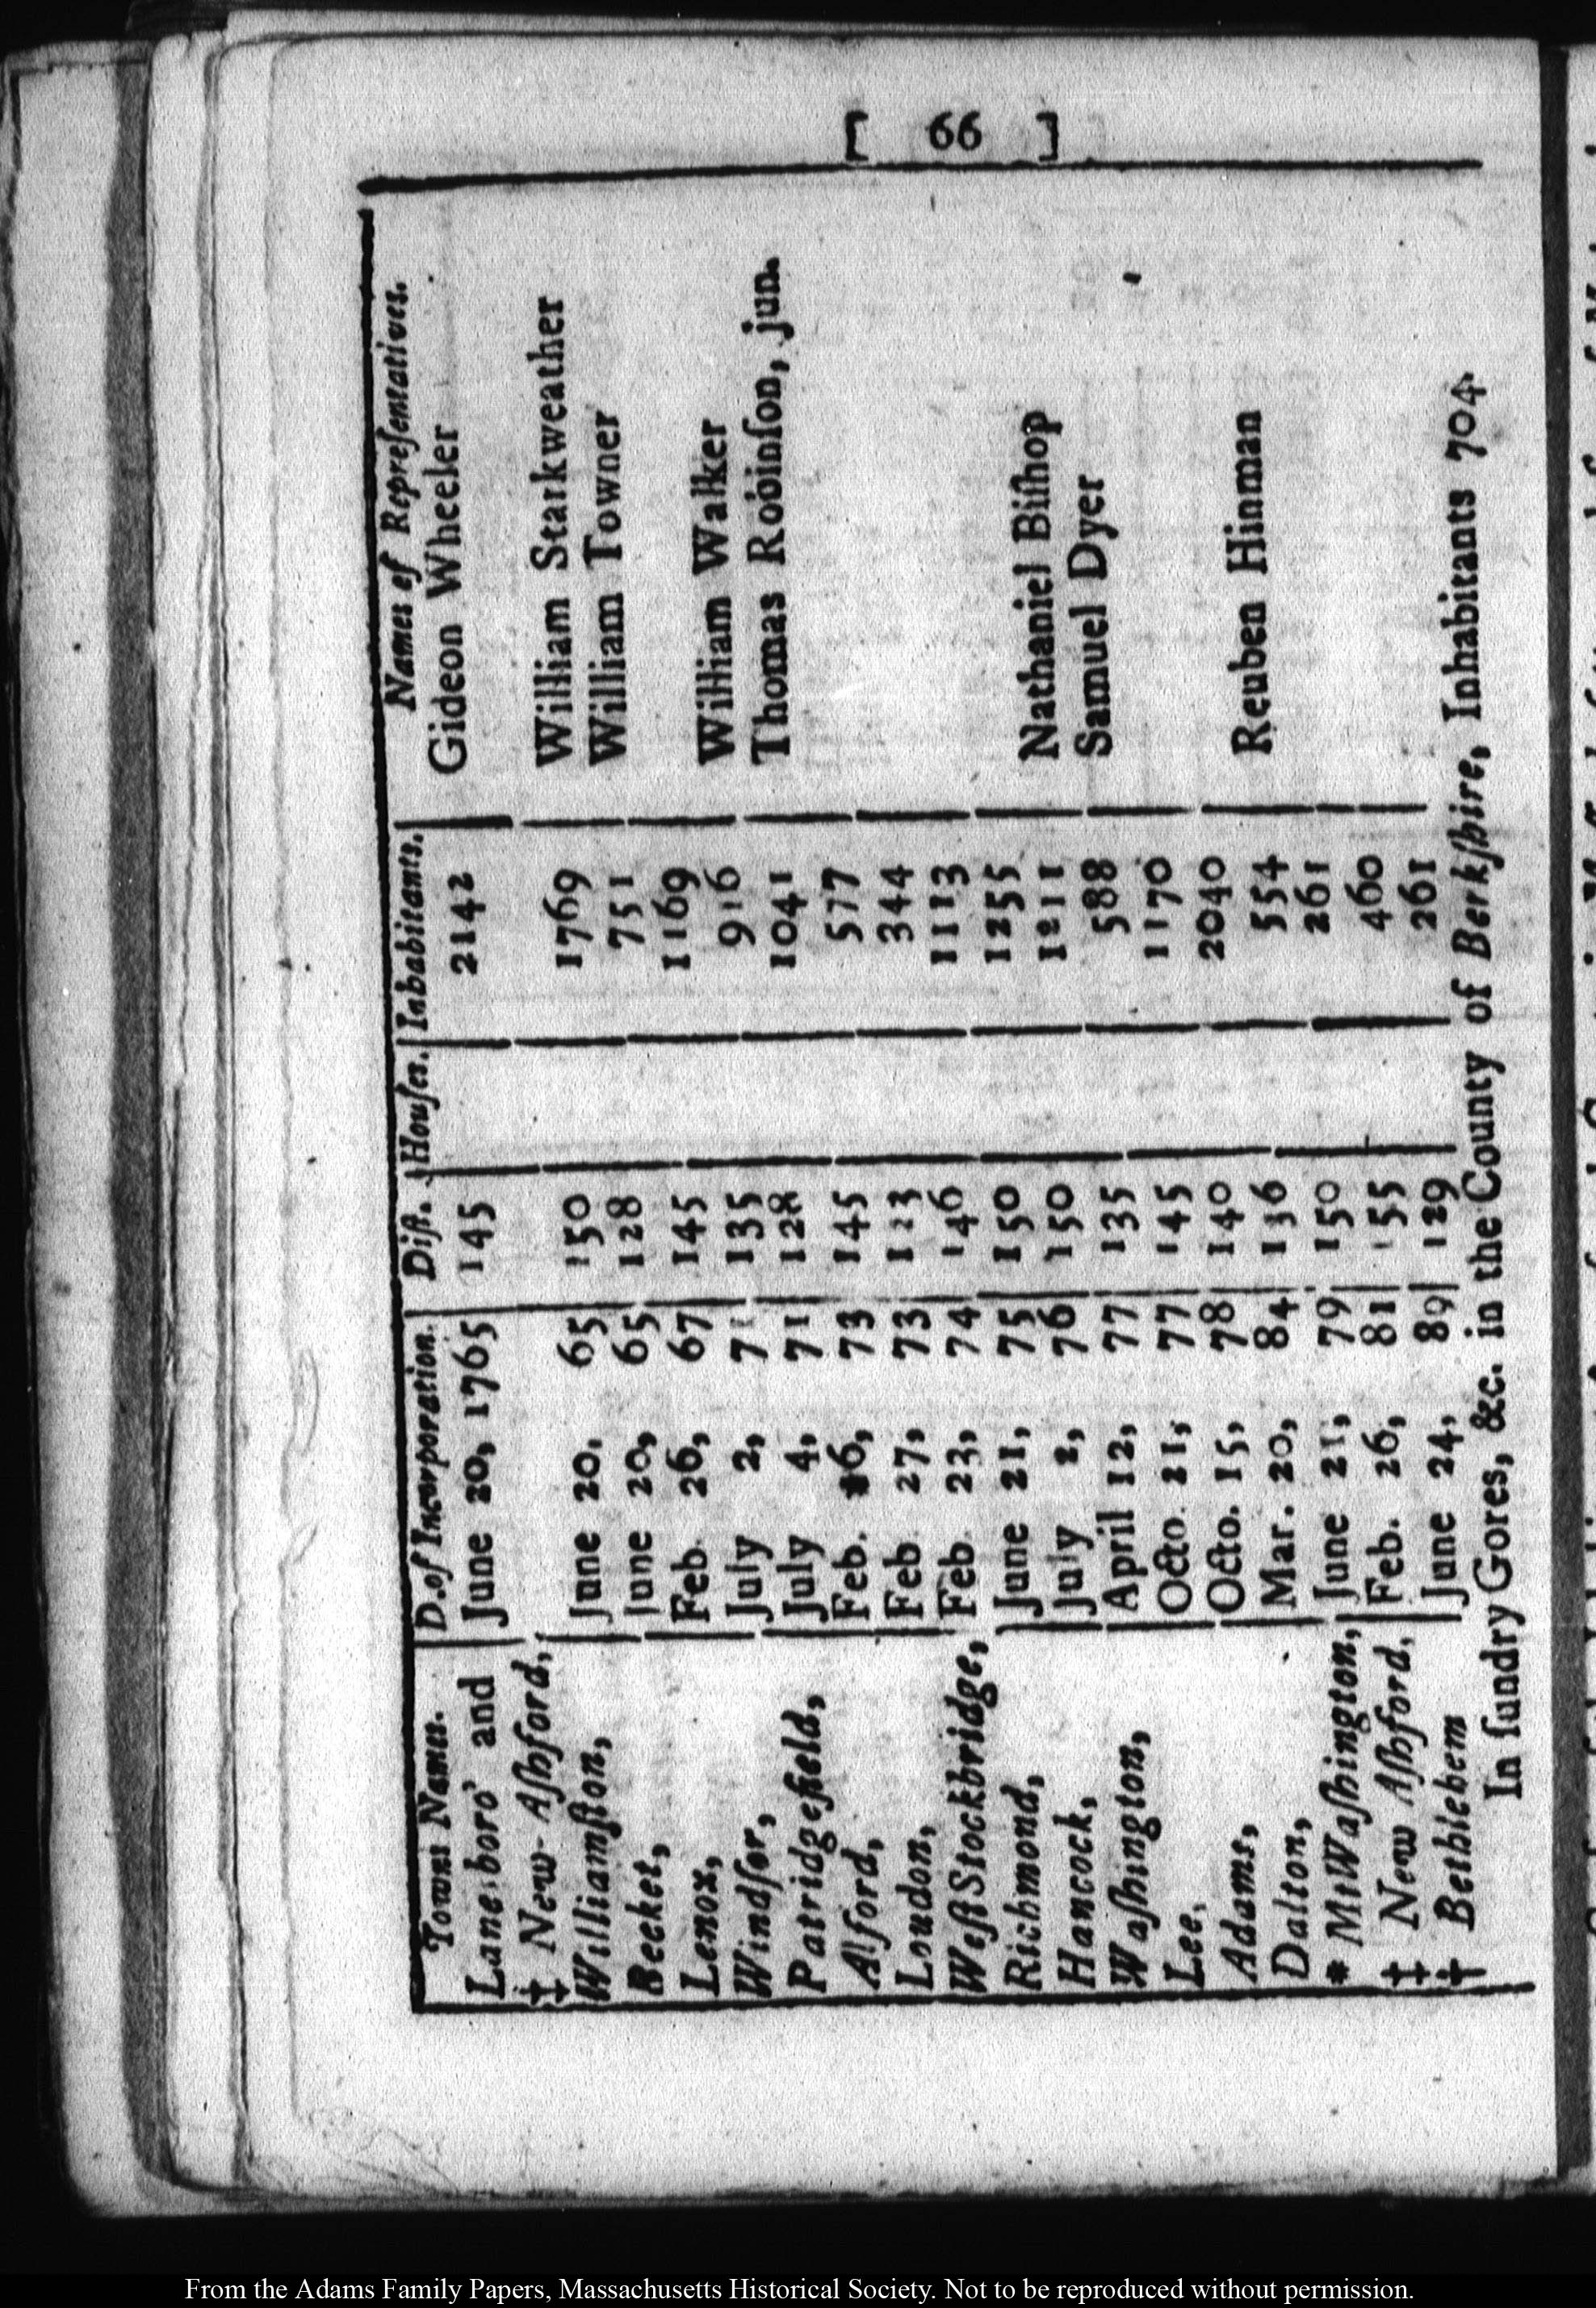 [ 66 ]
Towns Names. D. of Incorporation. Diſt. Houſes. Inhabitants. Names of Repreſentatives.
Laneſboro' and June 20, 1765 145 2142 Gideon Wheeler
‡ New-Aſhford,
Williamſton, June 20, 65 150 1769 William Starkweather
Becket, June 20, 65 128 751 William Towner
Lenox, Feb. 26, 67 145 1169
Windſor, July 2, 71 135 916 William Walker
Patridgefield, July 4, 71 128 1041 Thomas Robinſon, jun.
Alford, Feb. 16, 73 145 577
Loudon, Feb. 27, 73 123 344
Weſt Stockbridge, Feb. 23, 74 146 1113
Richmond, June 21, 75 150 1255
Hancock, July 2, 76 150 1211 Nathaniel Biſhop
Waſhington, April 12, 77 135 588 Samuel Dyer
Lee, Octo. 21, 77 145 1170
Adams, Octo. 15, 78 140 2040
Dalton, Mar. 20, 84 136 554 Reuben Hinman
* Mt Waſhington, June 21, 79 150 261
‡ New Aſhford, Feb. 26, 81 155 460
† Bethlehem June 24, 89 129 261
In ſundry Gores, &c. in the County of Berkſhire, Inhabitants 704.
From the Adams Family Papers, Massachusetts Historical Society. Not to be reproduced without permission.